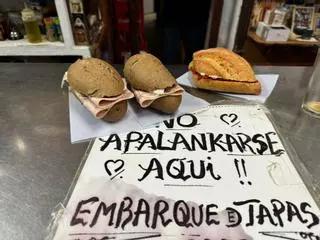 NO
APALANKARSE
AQUí !!
EMBARQUE DE TAPAS